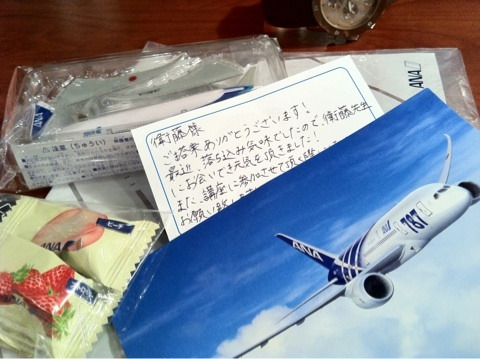 ANA
注意(ちゅうい)
衛藤様
ご搭乗ありがとうございます!
最近、落ち込み気味でしたので、衛藤先生
にお会いでき元気を頂きました!!
また、講座に参加させて頂く際
お願い致し
ANA
ピーチ
ANA
787